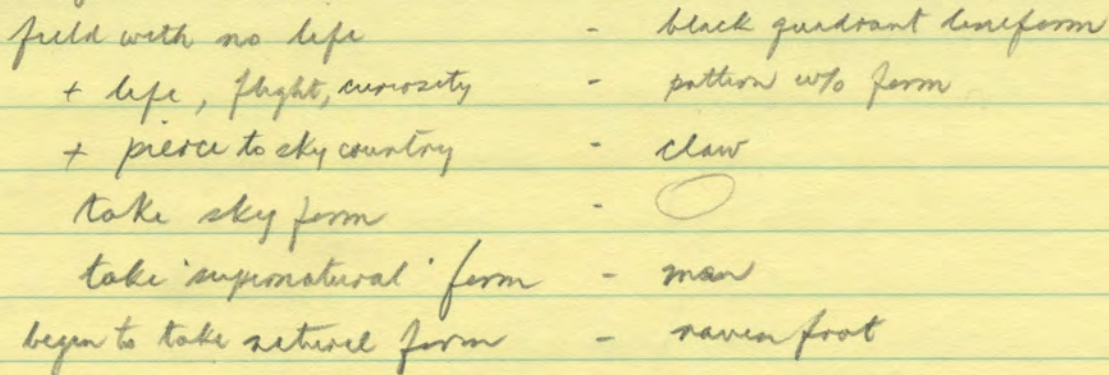 field with no life - black quadrant lineform
+ life, flight, curiosity - pattern w/o form
+ pierce to sky country - claw
take sky form -
take 'supernatural' form - man
begin to take natural form - raven foot